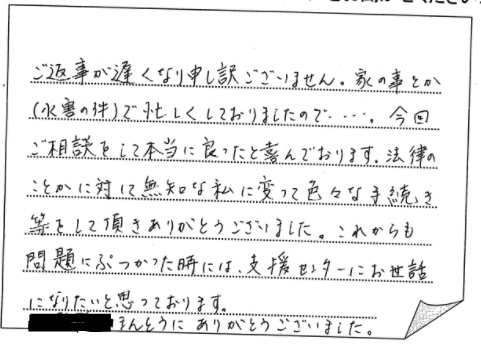 ご返事が遅くなり申し訳ございません。家の事とか
(水害の件)で忙しくしておりましたので‥‥。今回
ご相談をして本当に良ったと喜んでおります。法律の
ことかに対して無知な私に変って色々な手続き
等をして頂きありがとうございました。これからも
問題にぶつかった時には、支援センターにお世話
になりたいと思っております。
ほんとうにありがとうございました。